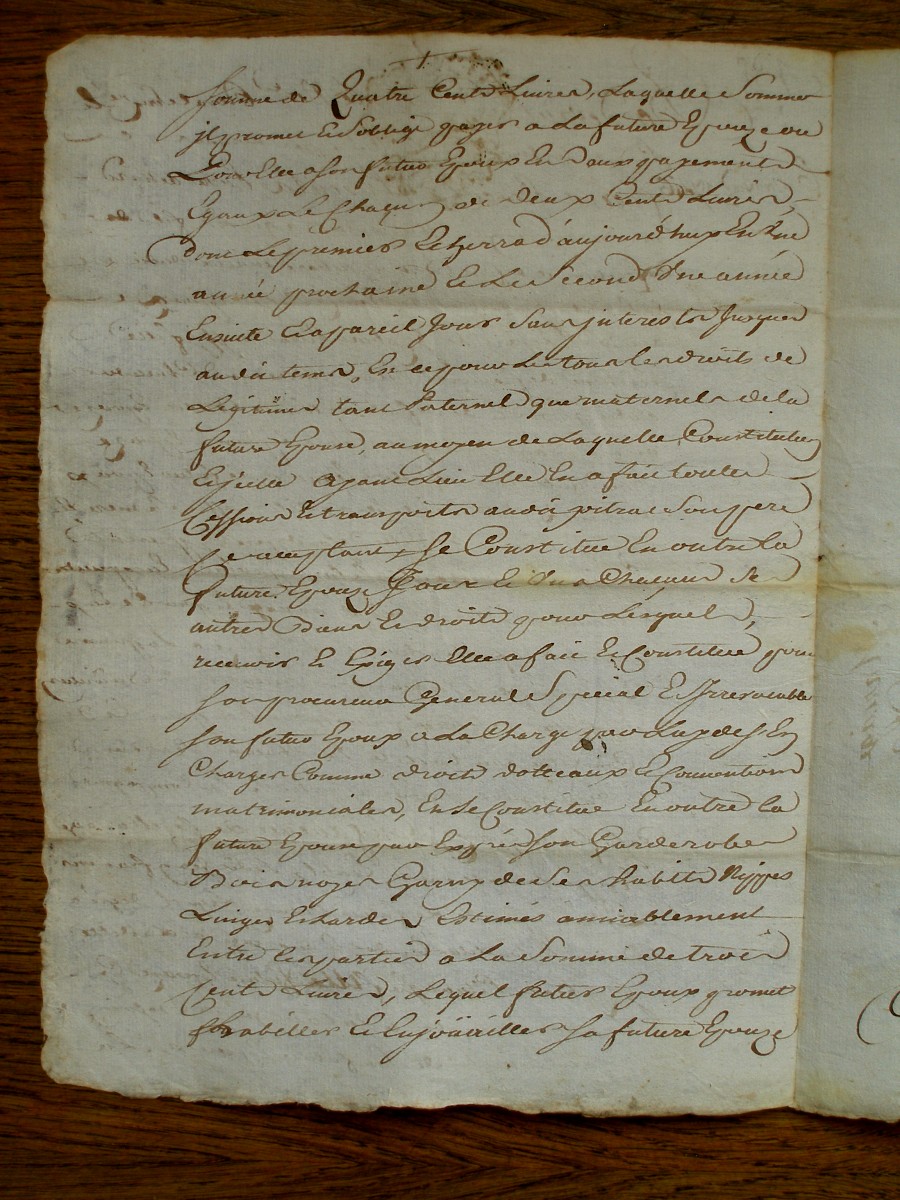 somme de Quatre Cents Livres, Laquelle Somme
il promet et Soblige payer a La future Epouze ou
Pour Elle a son futur Epoux En deux payements
Egaux Le Chacun de deux Cents Livres,
dont Le premier Echerra d'aujourd'huy En Une
année prochaine Et Le Second Une année
Ensuite Et a pareil Jour Sans jnterets Jusques
audit tems, Et ce pour tous les droits de
Légitime tant Paternel que maternels de la
future Epouse, au moyen de Laquelle Constitution
Et jcelle ayant Lieu Elle En a fait toutes
Cessions Et transports audit son pere
acceptant, Se Constitue En outre La
future Epouze Tous Et Uns Chacuns Ses
autres Biens Et droits pour Lesquels
recevoir Et Exiger Elle a fait Et Constitué pour
son procureur General Special Et Irrevocable
son futur Epoux a La Charge par Luy des En
Charger Comme droits dotteaux Et Conventions
matrimoniales, Et Se Constitue En outre La
future Epouse par Exprés son Garderobe
Bois noyer Garny de Ses habits Nippes
Linges Et hardes Estimés amiablement
Entre Les parties a La Somme de trois
Cents Livres, Lequel futur Epoux promet
habiller Et Enjoüailler sa future Epouze